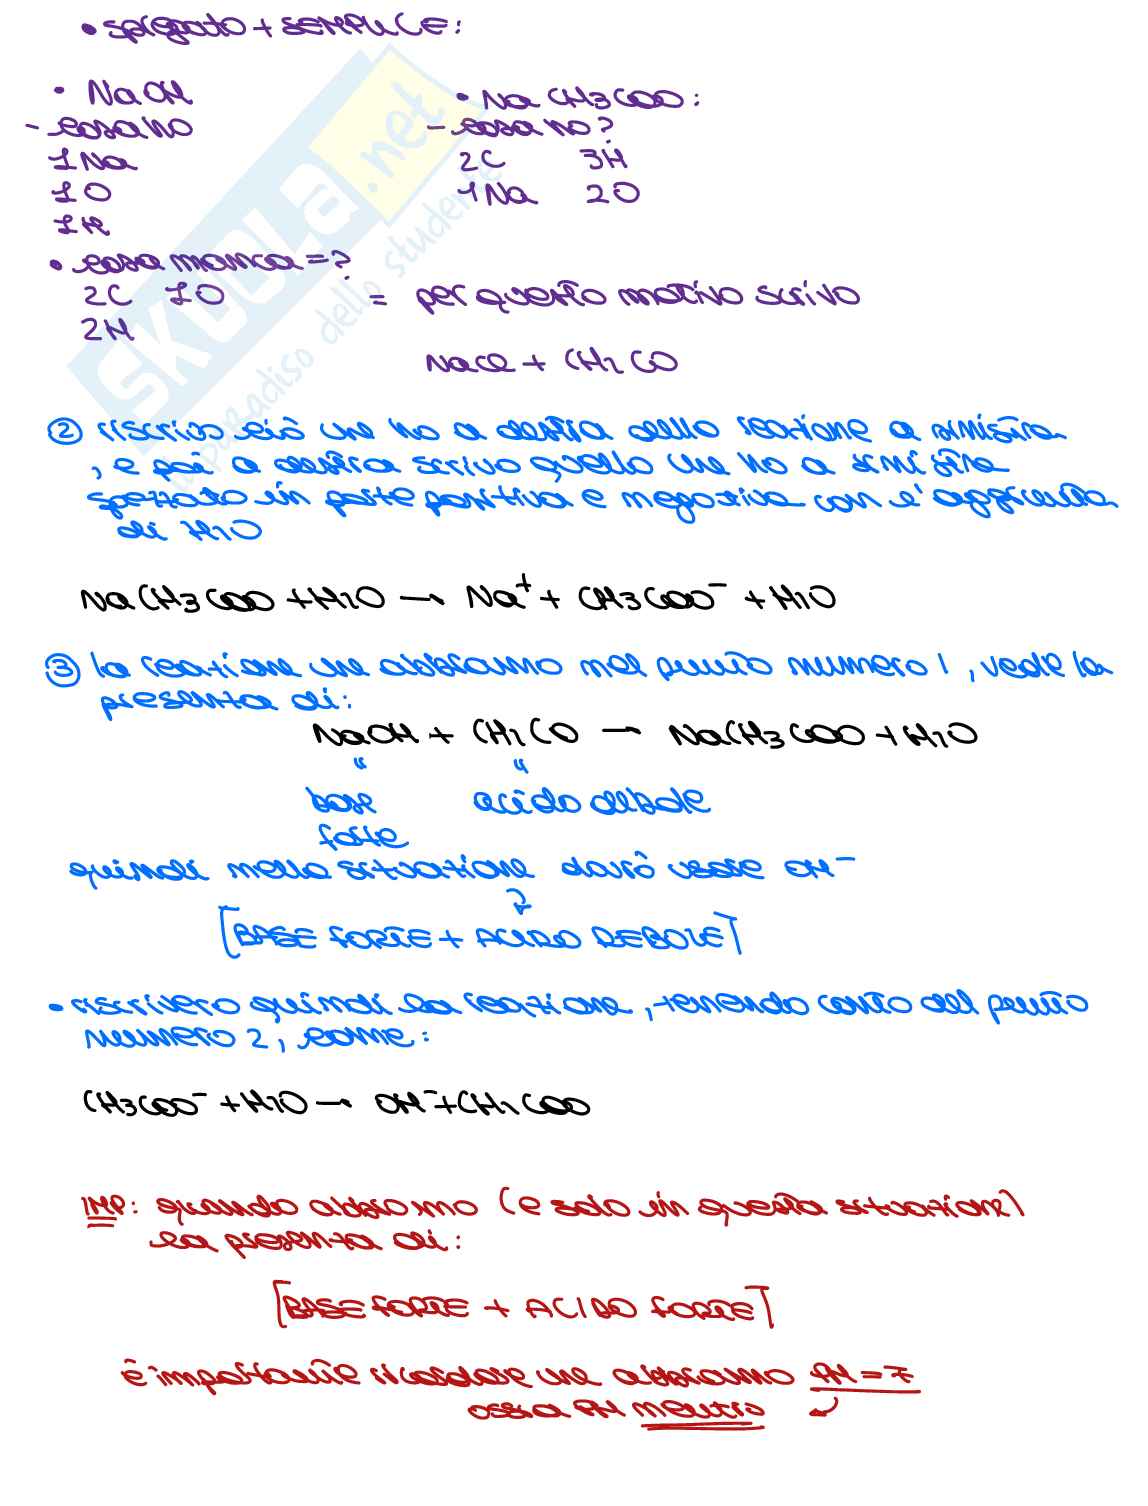 • spiegato + SEMPLICE:
• NaOH
- cosa ho
1 Na
1 O
1 H
• NaCH3COO:
- cosa ho?
2C 3H
1Na 2O
• cosa manca = ?
2C 1O = per questo motivo scrivo
2H
+ CH2CO
SKUOLA.net
il paradiso dello studente
② riscrivo ciò che ho a destra della reazione a sinistra
, e poi a destra scrivo quello che ho a sinistra
spezzato in parte positiva e negativa con l'aggiunta
di H2O
NaCH3COO + H2O → Na+ + CH3COO- + H2O
③ la reazione che abbiamo nel punto numero 1, vede la
presenza di:
NaOH + CH2CO → NaCH3COO + H2O
" "
base acido debole
forte
quindi nella situazione dovrò usare OH-
[BASE FORTE + ACIDO DEBOLE]
• riscriverò quindi la reazione, tenendo conto del punto
numero 2, come:
CH3COO- + H2O → OH- + CH2COO
IMP: quando abbiamo (e solo in questa situazione)
la presenza di:
[BASE FORTE + ACIDO FORTE]
è importante ricordare che abbiamo PH = 7
ossia PH neutro